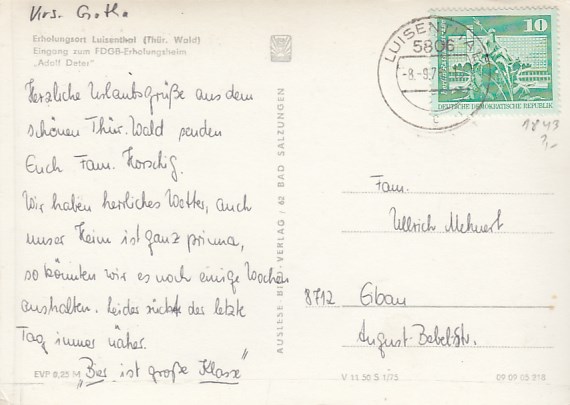 Krs. Gotha
Erholungsort Luisenthal (Thür. Wald)
Eingang zum FDGB-Erholungsheim
„Adolf Deter"
Herzliche Urlaubsgrüße aus dem
schönen Thür. Wald senden
Euch Fam. Horschig.
Wir haben herrliches Wetter, auch
unser Heim ist ganz prima,
so könnten wir es noch einige Wochen
aushalten. Leider rückt der letzte
Tag immer näher.
„Bier ist große Klasse"
EVP 0,25 M
AUSLESE-BILD-VERLAG / 62 BAD SALZUNGEN
LUISENTHAL
5806
-8.-9.7
c
10
DEUTSCHE DEMOKRATISCHE REPUBLIK
1843
Fam.
Ullrich Mehnert
8712 Eibau
August-Bebel-Str.
V 11 50 S 1/75
09 09 05 218